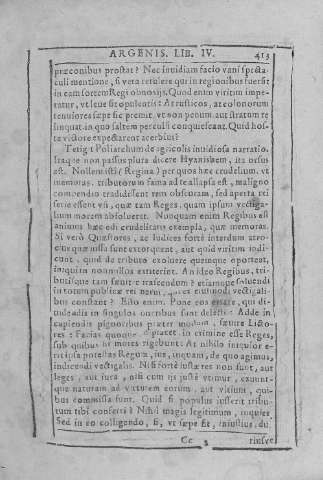 ARGENIS. LIB. IV. 413
præconibus prostat? Nec inuidiam facio vani specta-
culi mentione, si vera retulere qui in regionibus fuerūt
in eam sortem Regi obnoxijs. Quod enim viritim impe-
ratur, vt leue sit opulentis: At rusticos, at colonorum
tenuiores sæpe sic premit, vt non penum, aut stratum re
linquat in quo saltem perculsi conquiescant. Quid hos-
te victore expectarent acerbius?
Tetigit Poliarchum de agricolis inuidiosa narratio.
Itaque non passus plura dicere Hyanisbem, ita orsus
est. Nosse misti (Regina) per quos hæc crudelius, vt
memoras, tributorum fama ad te allapsa est, maligno
compendio tradidisse rem obscuram, sed aperta tri
sertie essent vsi, quæ tam Reges, quam ipsum vectiga-
lium morem absolueret. Nonquam enim Regibus est
animus hæc edi crudelitatis exempla, quæ memoras.
Si verò Quæstores, ac Iudices fortè interdum atro-
cius quàm iussa sunt extorqueant, aut quid viritim indi-
cunt, quid de tributo exoluere quemque oporteat,
iniquitas nonnullos exstiterint. An ideo Regibus, tri-
butisque tam fuerit irascendum? etiamque soluendi
in totum publicæ rei nerui, quos eiusmodi vectigali-
bus constant? Esto enim. Pone eos errare, qui di-
uidenda in singulos oneribus sunt delecti: Adde in
capiendis pignoribus præter modum, sæuire Licto-
res: Facias quoque
sub quibus hi mores rigebunt: At nihilo iniquior e-
rit ipsa potestas Regum, ius, inquam, de quo agimus,
indicendi vectigalis. Nisi fortè iustæ res non sunt, aut
leges, aut iura, nisi cum ijs iustè vtimur, exuunt-
que naturam ad vsurem eorum, aut vitium, qui-
bus commissa sunt. Quid si populus iusserit tribu-
tum tibi conferri? Nihil magis legitimum, inquies
Sed in eo colligendo, si, vt sæpe fit, iniustius, du-
Cc 3 riusve